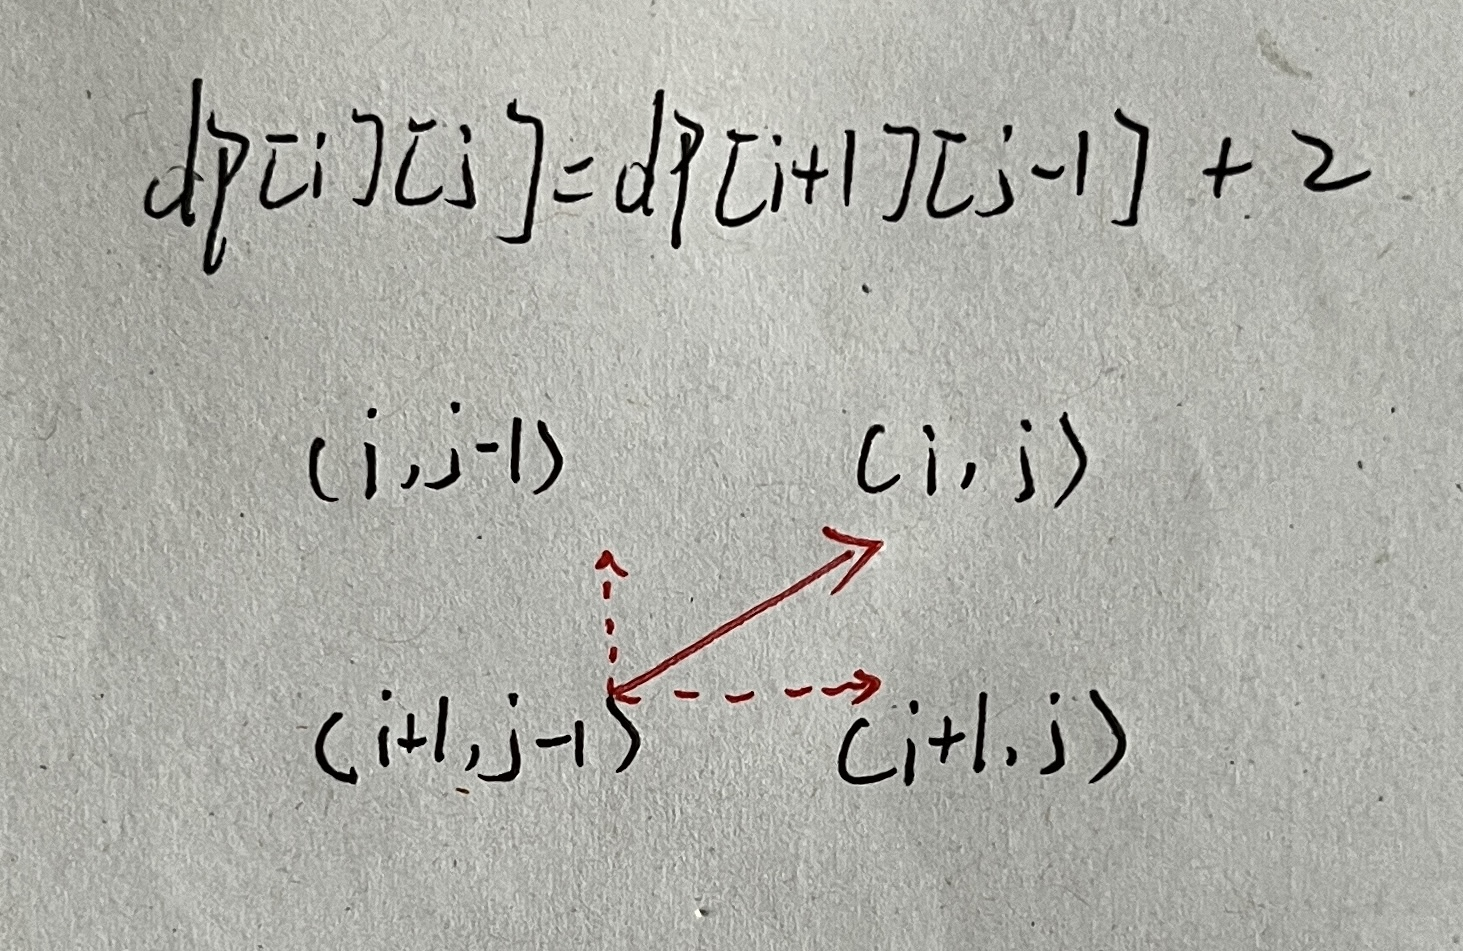 dp[i][j]=dp[i+1][j-1] + 2
(i,j-1) (i,j)
(i+1,j-1) (i+1,j)